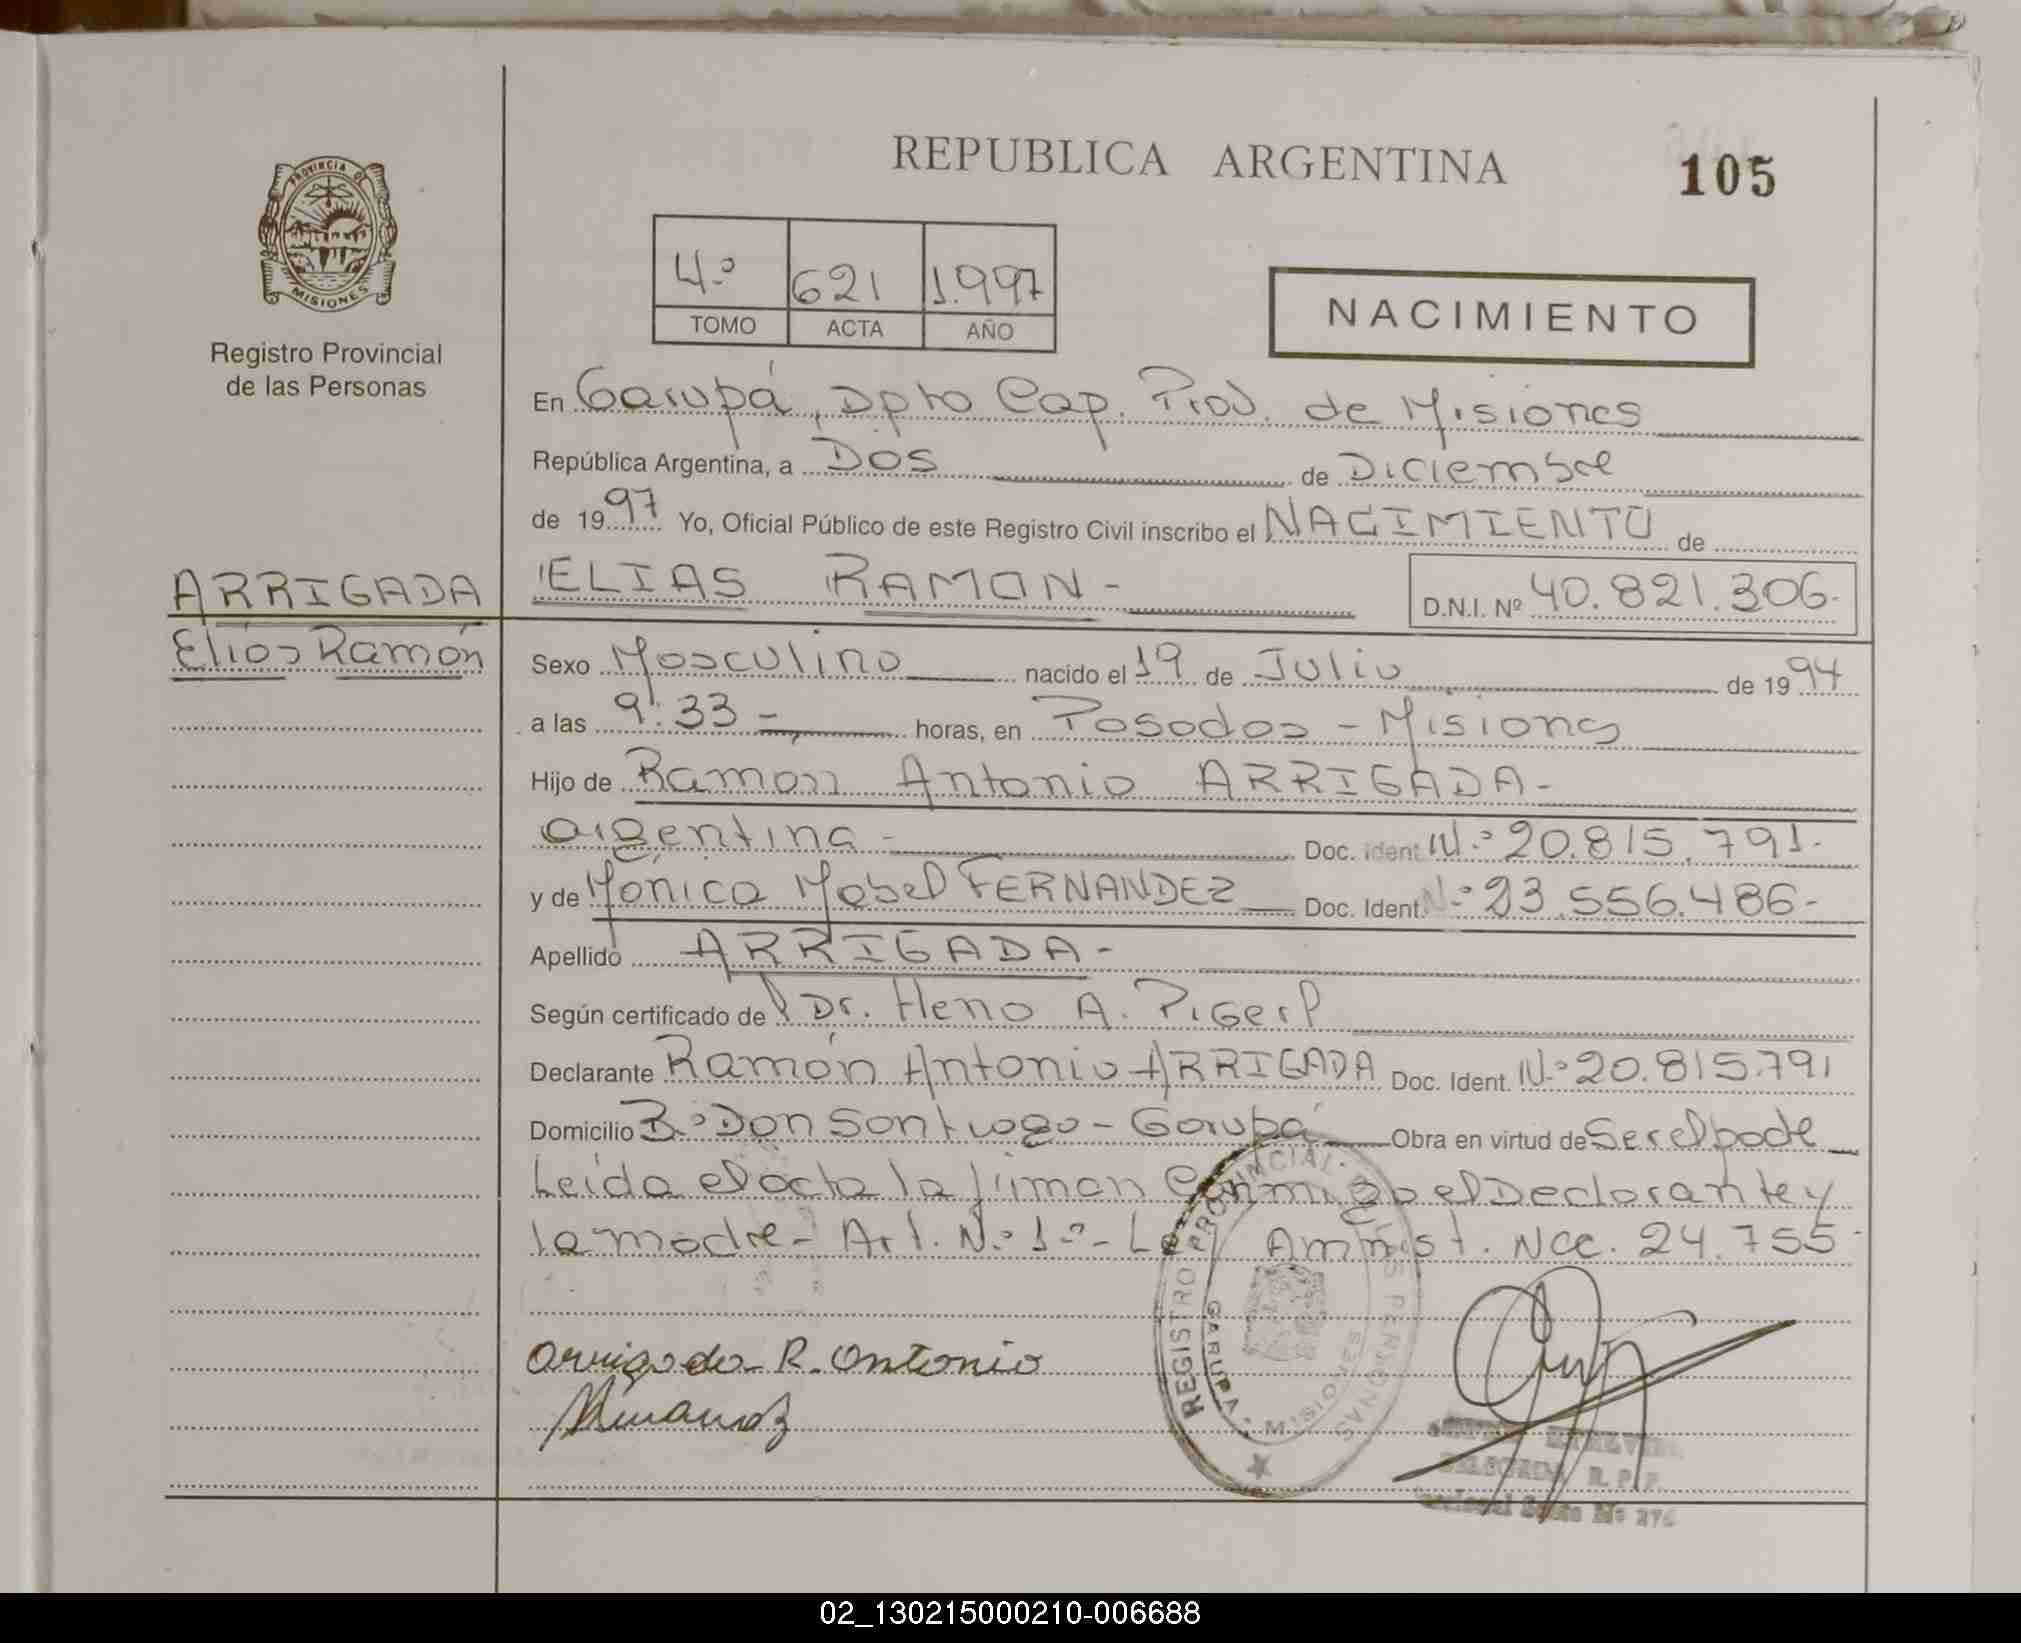 REPUBLICA ARGENTINA
105
PROVINCIA D
MISIONES
Registro Provincial
de las Personas
4º 621 1.997
TOMO ACTA AÑO
NACIMIENTO
En Garupá, Dpto Cap. Prov. de Misiones
República Argentina, a Dos de Diciembre
de 1997 Yo, Oficial Público de este Registro Civil inscribo el NACIMIENTO de
ARRIGADA
Elías Ramón
ELIAS RAMON -
D.N.I. Nº 40.821.306.
Sexo Masculino nacido el 19 de Julio de 1994
a las 9:33 - horas, en Posadas - Misiones
Hijo de Ramon Antonio ARRIGADA -
argentina - Doc. ident Nº 20.815.791.
y de Mónica Mabel FERNANDEZ Doc. Ident. Nº 23.556.486-
Apellido ARRIGADA -
Según certificado de Dr. A.
Declarante Ramón Antonio ARRIGADA Doc. Ident. Nº 20.815.791
Domicilio Bº Don Santiago - Garupá Obra en virtud de Ser el padre
Leída el acta la firman Conmigo el Declarante y
la madre - Art. Nº 1º - Ley Amnist. Nac. 24.755
REGISTRO PROVINCIAL DE LAS PERSONAS
GARUPA - MISIONES
Arrigada R. Antonio
DELEGADA R. P. P.